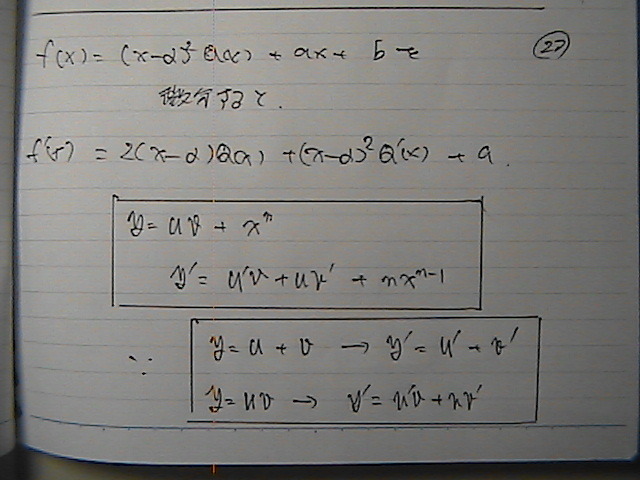 f(x) = (x-α)² Q(x) + ax + b を
㉗
微分すると.
f'(x) = 2(x-α)Q(x) + (x-α)² Q'(x) + a.
y = uv + xⁿ
y' = u'v + uv' + nxⁿ⁻¹
∵ y = u + v → y' = u' + v'
y = uv → y' = u'v + uv'